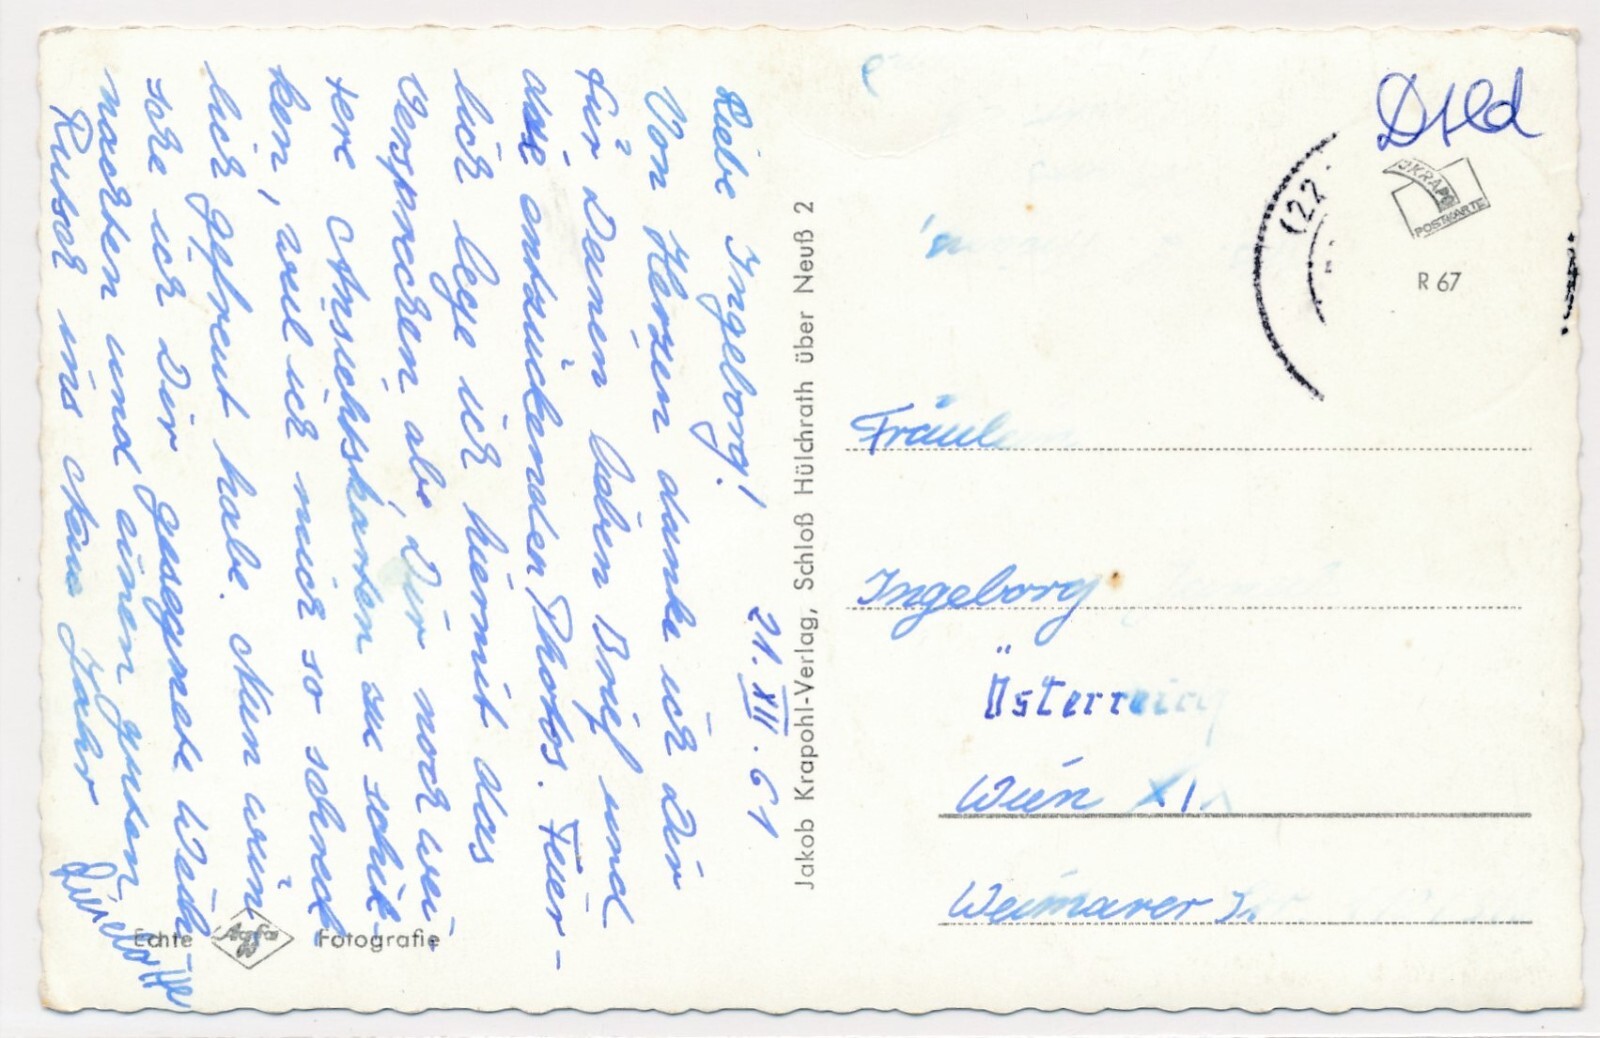 Liebe Ingeborg!
21. XII. 61
Von Herzen danke ich Dir
für Deinen lieben Brief und
die entzückenden Photos. Feier-
lich lege ich hiermit das
Versprechen abe Dir noch wei-
tere Ansichtskarten zu schik-
ken, weil ich mich so schreck
lich gefreut habe. Nun wün
sche ich Dir gesegnete Weih
nachten und einen guten
Rutsch ins Neue Jahr
Liselotte
Jakob Krapohl-Verlag, Schloß Hülchrath über Neuß 2
Echte Agfa Fotografie
Dtld
(22
KRAPO
POSTKARTE
R 67
Fräulein
Ingeborg
Österreich
Wien
Weimarer